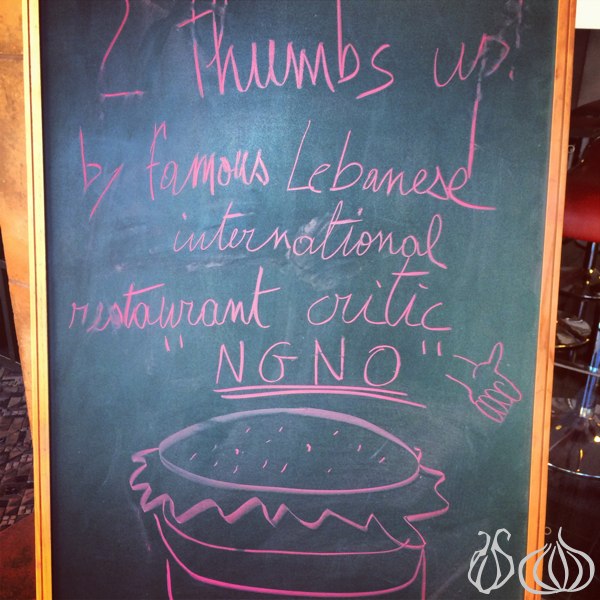 2 Thumbs up!
by famous Lebanese
international
restaurant critic
"NGNO"